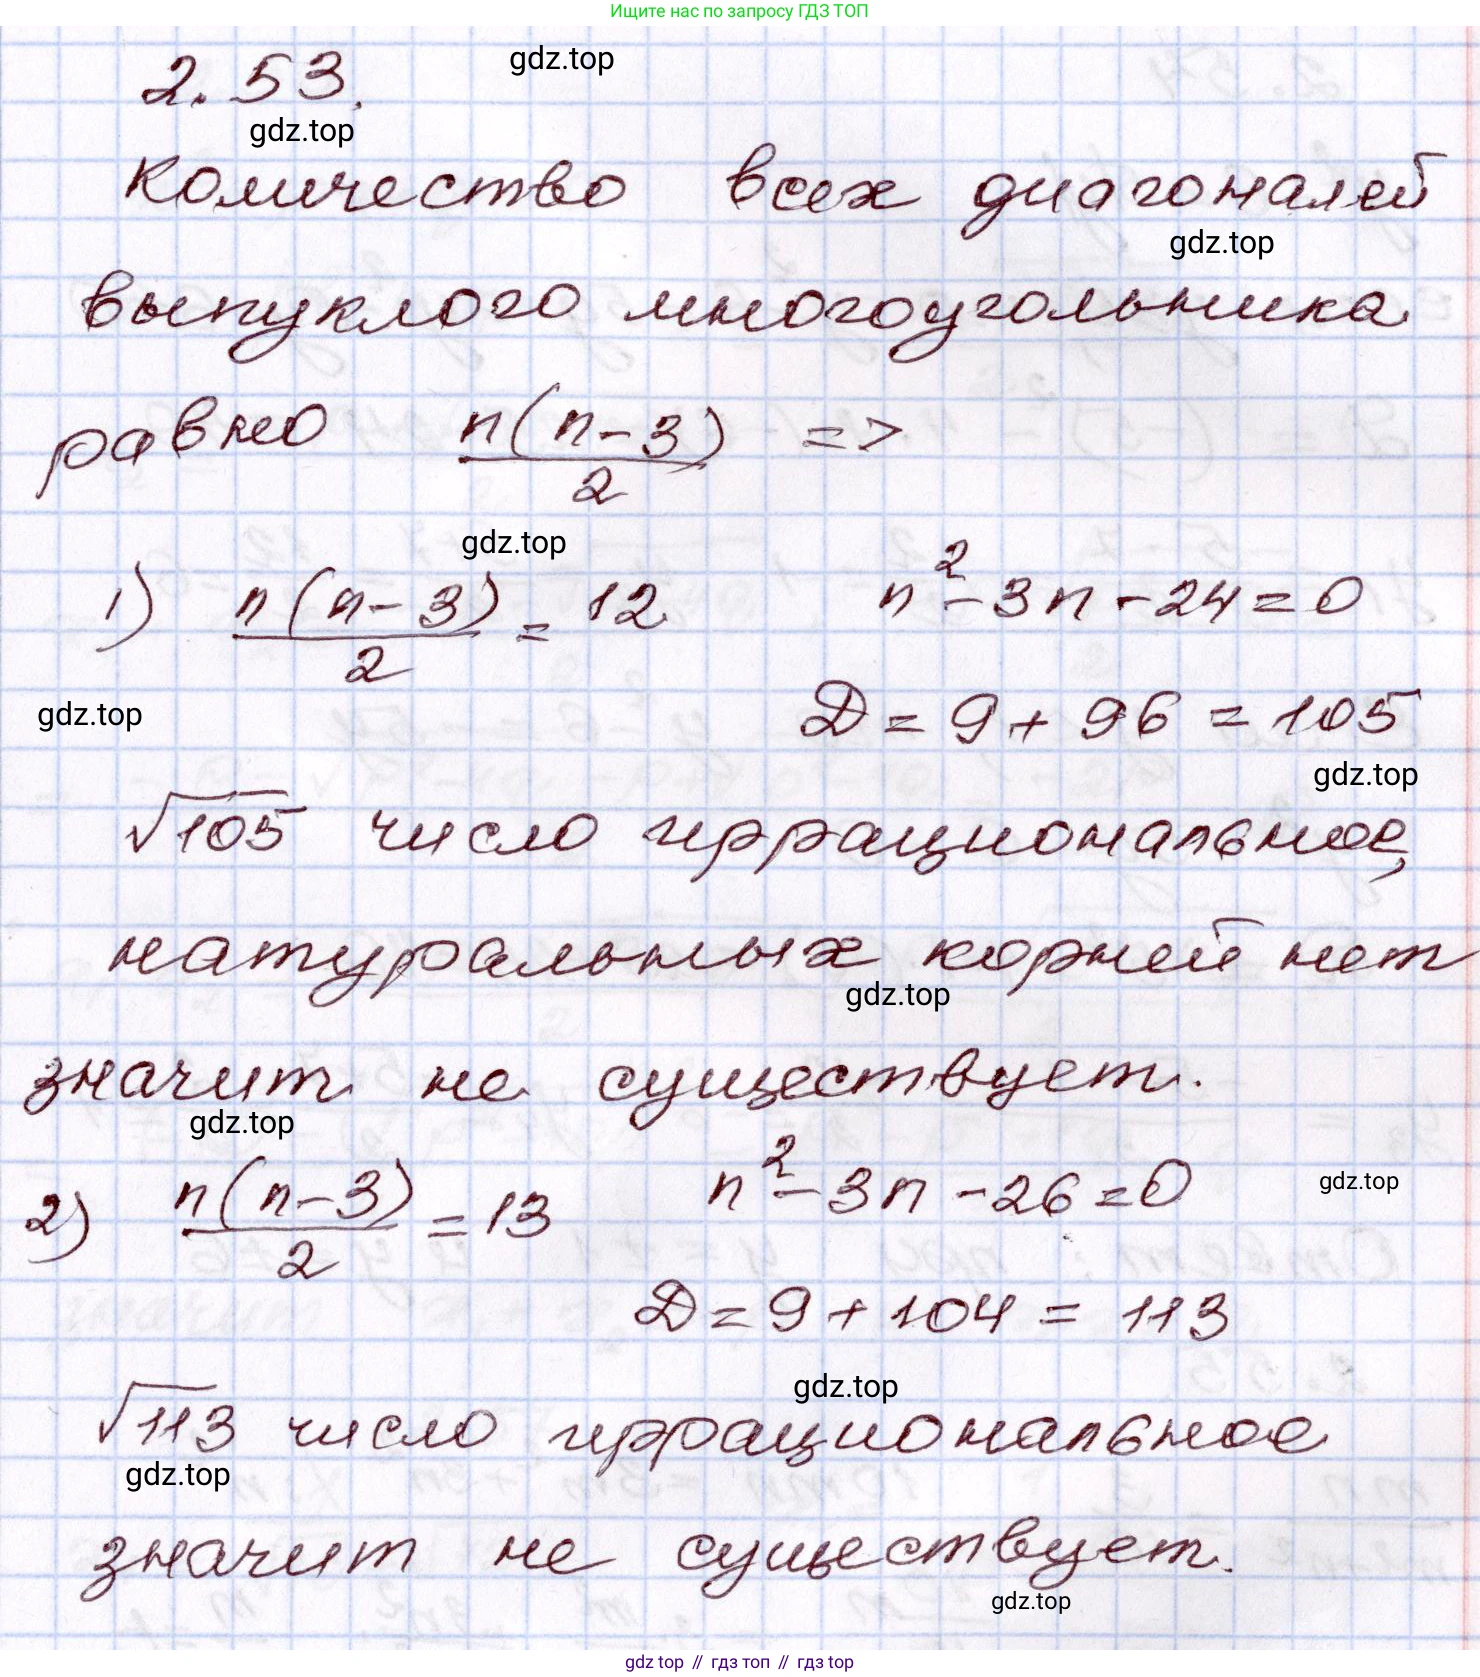 Ищите нас по запросу ГДЗ ТОП
gdz.top
2.53.
gdz.top
Количество всех диагоналей
gdz.top
выпуклого многоугольника
равно n(n-3)/2 =>
gdz.top
1) n(n-3)/2 = 12 n²-3n-24=0
gdz.top
D = 9 + 96 = 105
gdz.top
√105 число иррациональное,
натуральных корней нет
gdz.top
значит не существует.
gdz.top
2) n(n-3)/2 = 13 n²-3n-26=0
gdz.top
D = 9 + 104 = 113
gdz.top
√113 число иррациональное
gdz.top
значит не существует.
gdz.top
gdz top // гдз топ // гдз top